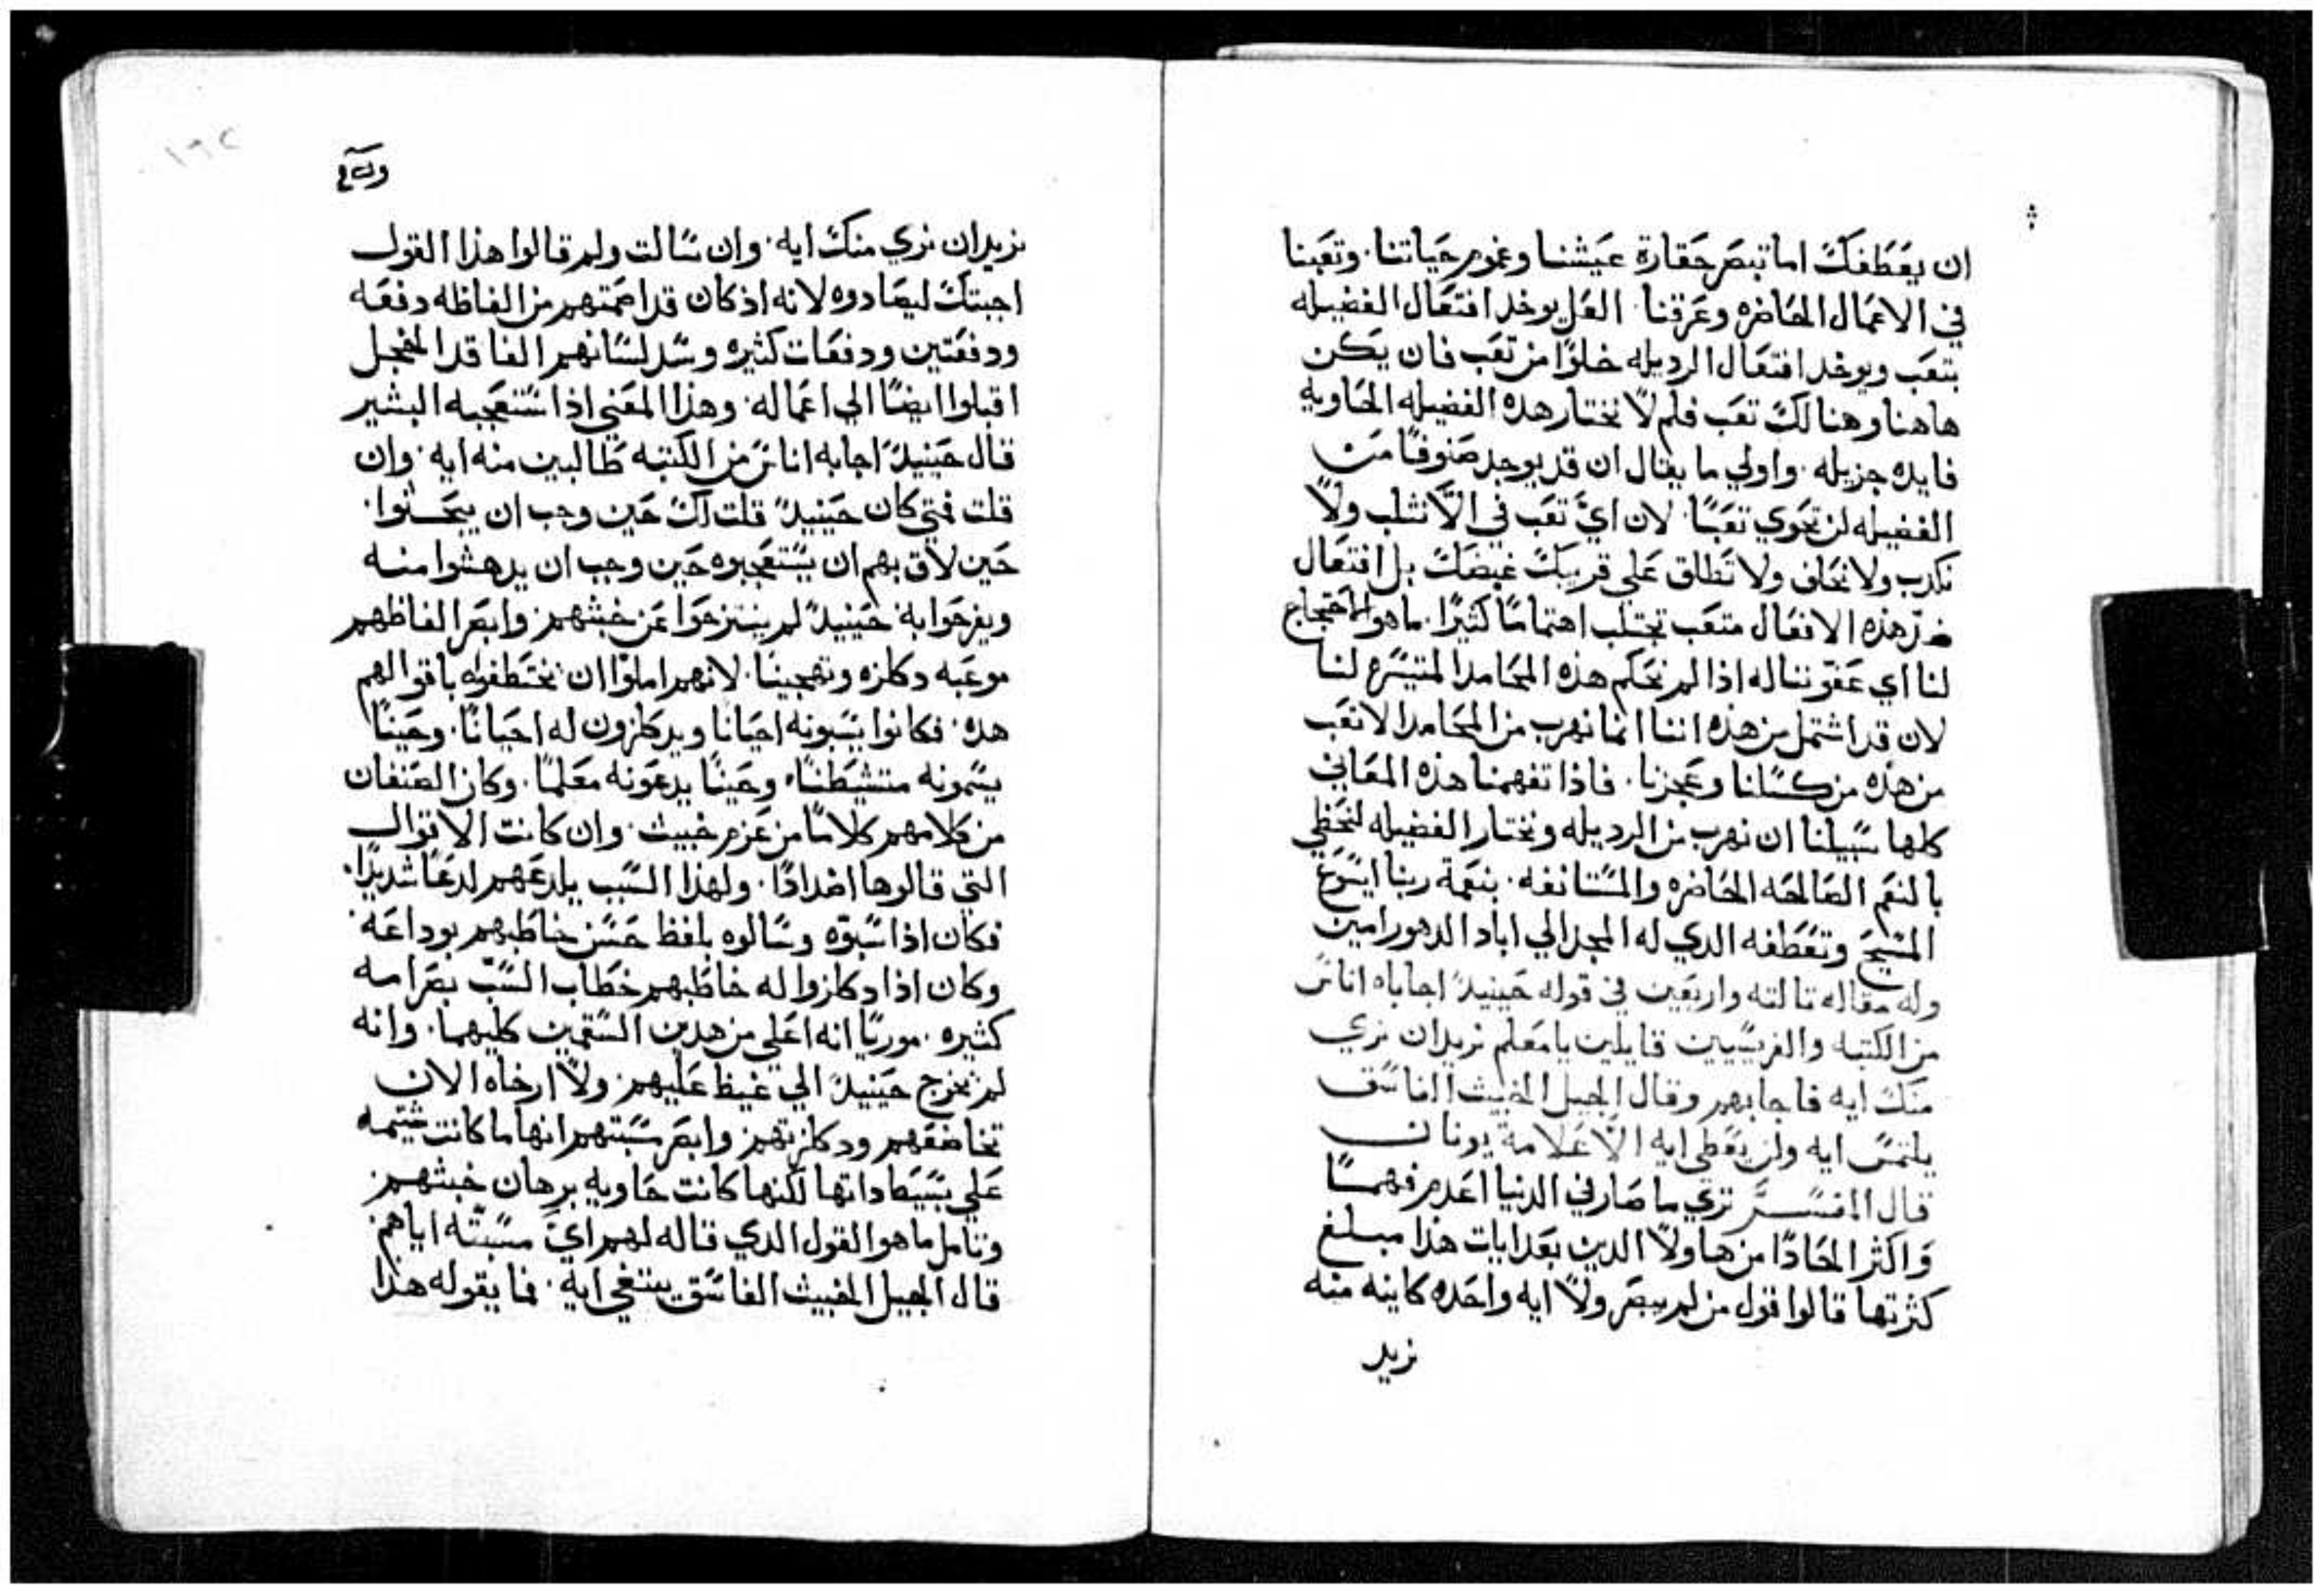 ان يعَطفكَ اما تبصَر حَقارة عيَشنا وغموم حيَاتنا. وتعَبنا
في الاعمَال الحَاضره وعَرقنا. العَل يوخد افتعَال الفضيله
بتعَب ويوخد افتعَال الرديله خلوًا من تعَب فان يكن
هاهنا وهنالكَ تعَب فلم لاَ نختار هده الفضيله الحَاويه
فايده جزيله. واولي ما يقال ان قد يوجد صَنوفًا من
الفضيله لن تحَوي تعَبًا. لان ايَّ تعَب في الاَّ تثلب ولاَ
تكدب ولا تحَلف ولا تَطلق عَلي قريبكَ غيضَكَ بل افتعَال
ضدّ هذه الافعَال متعَب تجتلب اهتمامًا كثيرًا. ما هو الاحتجاج
لنا اي عَفو نناله اذا لم نحَكم هذه المحَامد المتيسَره لنا
لان قد اشتمل من هذه اننا انما نهرب من المحَامد الاتعَب
من هذه من كسَلنا وعَجزنا. فاذا تفهمنا هذه المعَاني
كلها سَبيلنا ان نهرب من الرديله ونختار الفضيله لنحَظي
بالنعَم الصَالحَه الحَاضره والمسَتانفه. بنعَمة ربنا ايسَوعَ
المسَيحَ وتعَطفه الدي له المجد الي اباد الدهور امين
وله مقاله تالته واربعَين في قوله حَينيدً اجاباه اناسَ
من الكتبه والفريسَيين قايلين يا معَلم نريد ان نري
منكَ ايه فاجابهم وقال الجيل الخبيث الفاسَق
يلتمسَ ايه ولن يعَطي ايه الاّ عَلامة يونان
قال المفسَسرَّ تري ما صَار في الدنيا اعَدم فهمًا
وَاكثر الحَادًا من هاولاً الدين بعَد ايات هذا مبلغ
كثرتها قالوا قول من لم يبصَر ولاَ ايه واحَده كاينه منه
نريد
نريد ان نري منكَ ايه. وان سَالت ولم قالوا هذا القول
اجبتكَ ليصَادوه لانه اذ كان قد اصَمتهم من الفاظه دفعَه
ودفعَتين ودفعَات كثيره وسَد لسَانهم الفاقد الخجل
اقبلوا ايضَا الي اعَماله. وهذا المعَني اذ استَعَجبه البشير
قال حَينيدً اجابه اناسَ من الكتبه طَالبين منه ايه. وان
قلت فمتي كان حَينيدً قلت لكَ حَين وجب ان يتحَسنوا.
حَين لاق بهم ان يسَتعَجبوه حَين وجب ان يدهشوا منه
ويفرحَوا به. حَينيدً لم ينتزحَوا عَن خبثهم. وابصَر الفاظهم
موعَبه دكلزه وتهجينا. لانهم املوا ان يختطفوه باقوالهم
هده. فكانوا يسَبونه احيَانا ويدكلزون له احيَانًا. وحَينًا
يسَمونه متشيطَنًا. وحَينًا يدعَونه معَلمًا. وكان الصَنفان
من كلامهم كلامًا من عَزم خبيث. وان كانت الاقوال
التي قالوها اضدادًا. ولهذا السَبب يلدعَهم لدعًا شديدًا.
فكان اذا سَبوّه وسَالوه بلفظ حَسَن خاطَبهم بوداعَه.
وكان اذا دكلزوا له خاطَبهم خطَاب السَبّ بصَرامه
كثيره. موريًا انه اعَلي من هدين السَقمين كليهما. وانه
لم يخرج حَينيدً الي غيظ عَليهم. ولاَّ ارخاه الان
تخاضعَهم ودكلزتهم. وابصَر مسَبتهم انها ما كانت شتيمه
عَلي بسَيط داتها لكنها كانت حَاويه برهان خبثهم.
وتامل ما هو القول الدي قاله لهم ايَّ مسَبتّه اياهم.
قال الجيل الخبيث الفاسَق يبتغي ايه. فما يقوله هذا